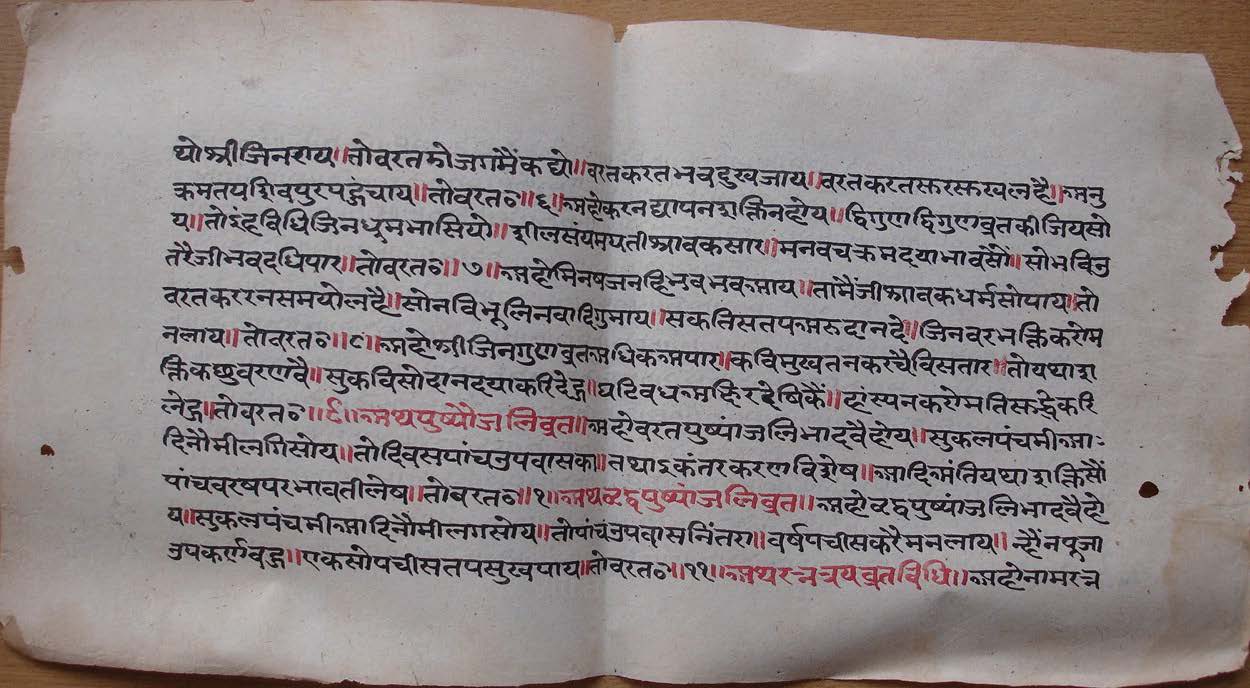 यो श्रीजिनराय॥तोवरत जगमैंकह्यो॥वरतकरतभवदुखजाय॥वरतकरतसुरसुखलहै॥अनु
क्रमतयशिवपुरपहुंचाय॥तोवरत०॥६॥अहोकरनद्यापनशक्तिनहोय॥द्विगुणद्विगुणवृतकीजियसो
य॥तोइंहविधिजिनधुमभासियो॥शीलसंयमयतीश्रावकसार॥मनवचक्रमदयाभावसौं॥सोभविजु
तरैजीभवदधिपार॥तोवरत०॥७॥अहोमिनषजनहिभवभवआय॥तामैंजीश्रावकधर्मसोपाय॥तो
वरतकररनसमयोलहै॥सोनविभूलिनवादिगुमाय॥सकतिसतपअरुदानदे॥जिनवरभक्तिकरोम
नलाय॥तोवरत०॥८॥अहोश्रीजिनगुणवृतअधिकअपार॥कविमुखतनकरचैविसतार॥तोयथाश
क्तिकछुवरणवै॥सुकविसोदानदयाकरिदेहु॥ हांस्यनकरोमतिसुद्धकरि
लेहु॥तोवरत०॥९॥अथपुष्पांजलिवृत॥अहोवरतपुष्पांजलिभादवैहोय॥सुकलपंचमीआ
दिनौमीलगिसोय॥तोदिवसपांचउपवासका॥तथाऽकंतरकरणविशेष॥आदिअंतियथाशक्तिसौं
पांचवरषपरभावतीलेष॥तोवरत०॥१०॥अथवृद्धपुष्पांजलिवृत॥अहोवृद्धपुष्पांजलिभादवैहो
य॥सुकलपंचमीआदिनौमीलगसोय॥तोपांचउपवासनिंतरा॥वर्षपचीसकरैमनलाय॥न्हौंनपूजा
उपकर्णवहु॥एकसोपचीसतपसुखपाय॥तोवरत०॥११॥अथरत्नत्रयवृतविधि॥अहोनामरत्न